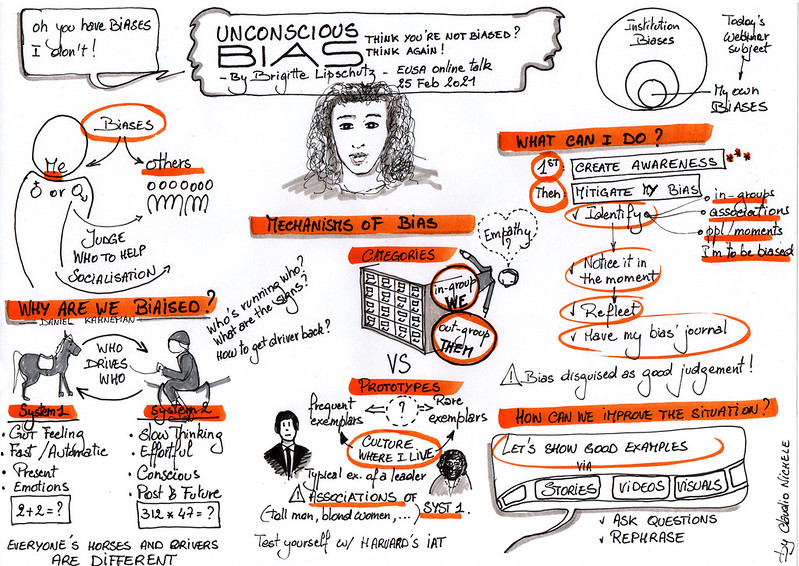 oh you have BIASES
I don't!
UNCONSCIOUS
BIAS
THINK YOU'RE NOT BIASED?
THINK AGAIN!
- By Brigitte Lipschutz - EUSA online talk
25 Feb 2021
Institution
Biases
Today's
Webinar
subject
My own
BIASES
BIASES
Me
others
♂ or ♀
JUDGE
WHO TO HELP
SOCIALISATION
WHY ARE WE BIAISED?
DANIEL KAHNEMAN
WHO
DRIVES
WHO
Who's running who?
What are the signs?
How to get driver back?
System 1
• GUT Feeling
• Fast / Automatic
• Present
• Emotions
2+2 = ?
System 2
• Slow Thinking
• Effortful
• Conscious
• Past & Future
312 * 47 = ?
EVERYONE'S HORSES AND DRIVERS
ARE DIFFERENT
MECHANISMS OF BIAS
CATEGORIES
Empathy?
in-group
WE
out-group
THEM
VS
PROTOTYPES
frequent
exemplars
?
Rare
exemplars
CULTURE
WHERE I LIVE
Typical ex. of a leader
! ASSOCIATIONS OF SYST 1.
(tall man, blond women, ...)
Test yourself w/ HARVARD'S iAT
WHAT CAN I DO?
1ST: CREATE AWARENESS ***
Then: MITIGATE MY BIAS
✓ Identify
• in-groups
• associations
• ppl/moments
I'm to be biased
✓ Notice it in
the moment
✓ Reflect
✓ Have my bias' journal
! Bias disguised as good judgement!
HOW CAN WE IMPROVE THE SITUATION?
LET'S SHOW GOOD EXAMPLES
VIA
STORIES
ViDEOS
VISUALS
✓ ASK QUESTIONS
✓ REPHRASE
by Claudio NICHELE